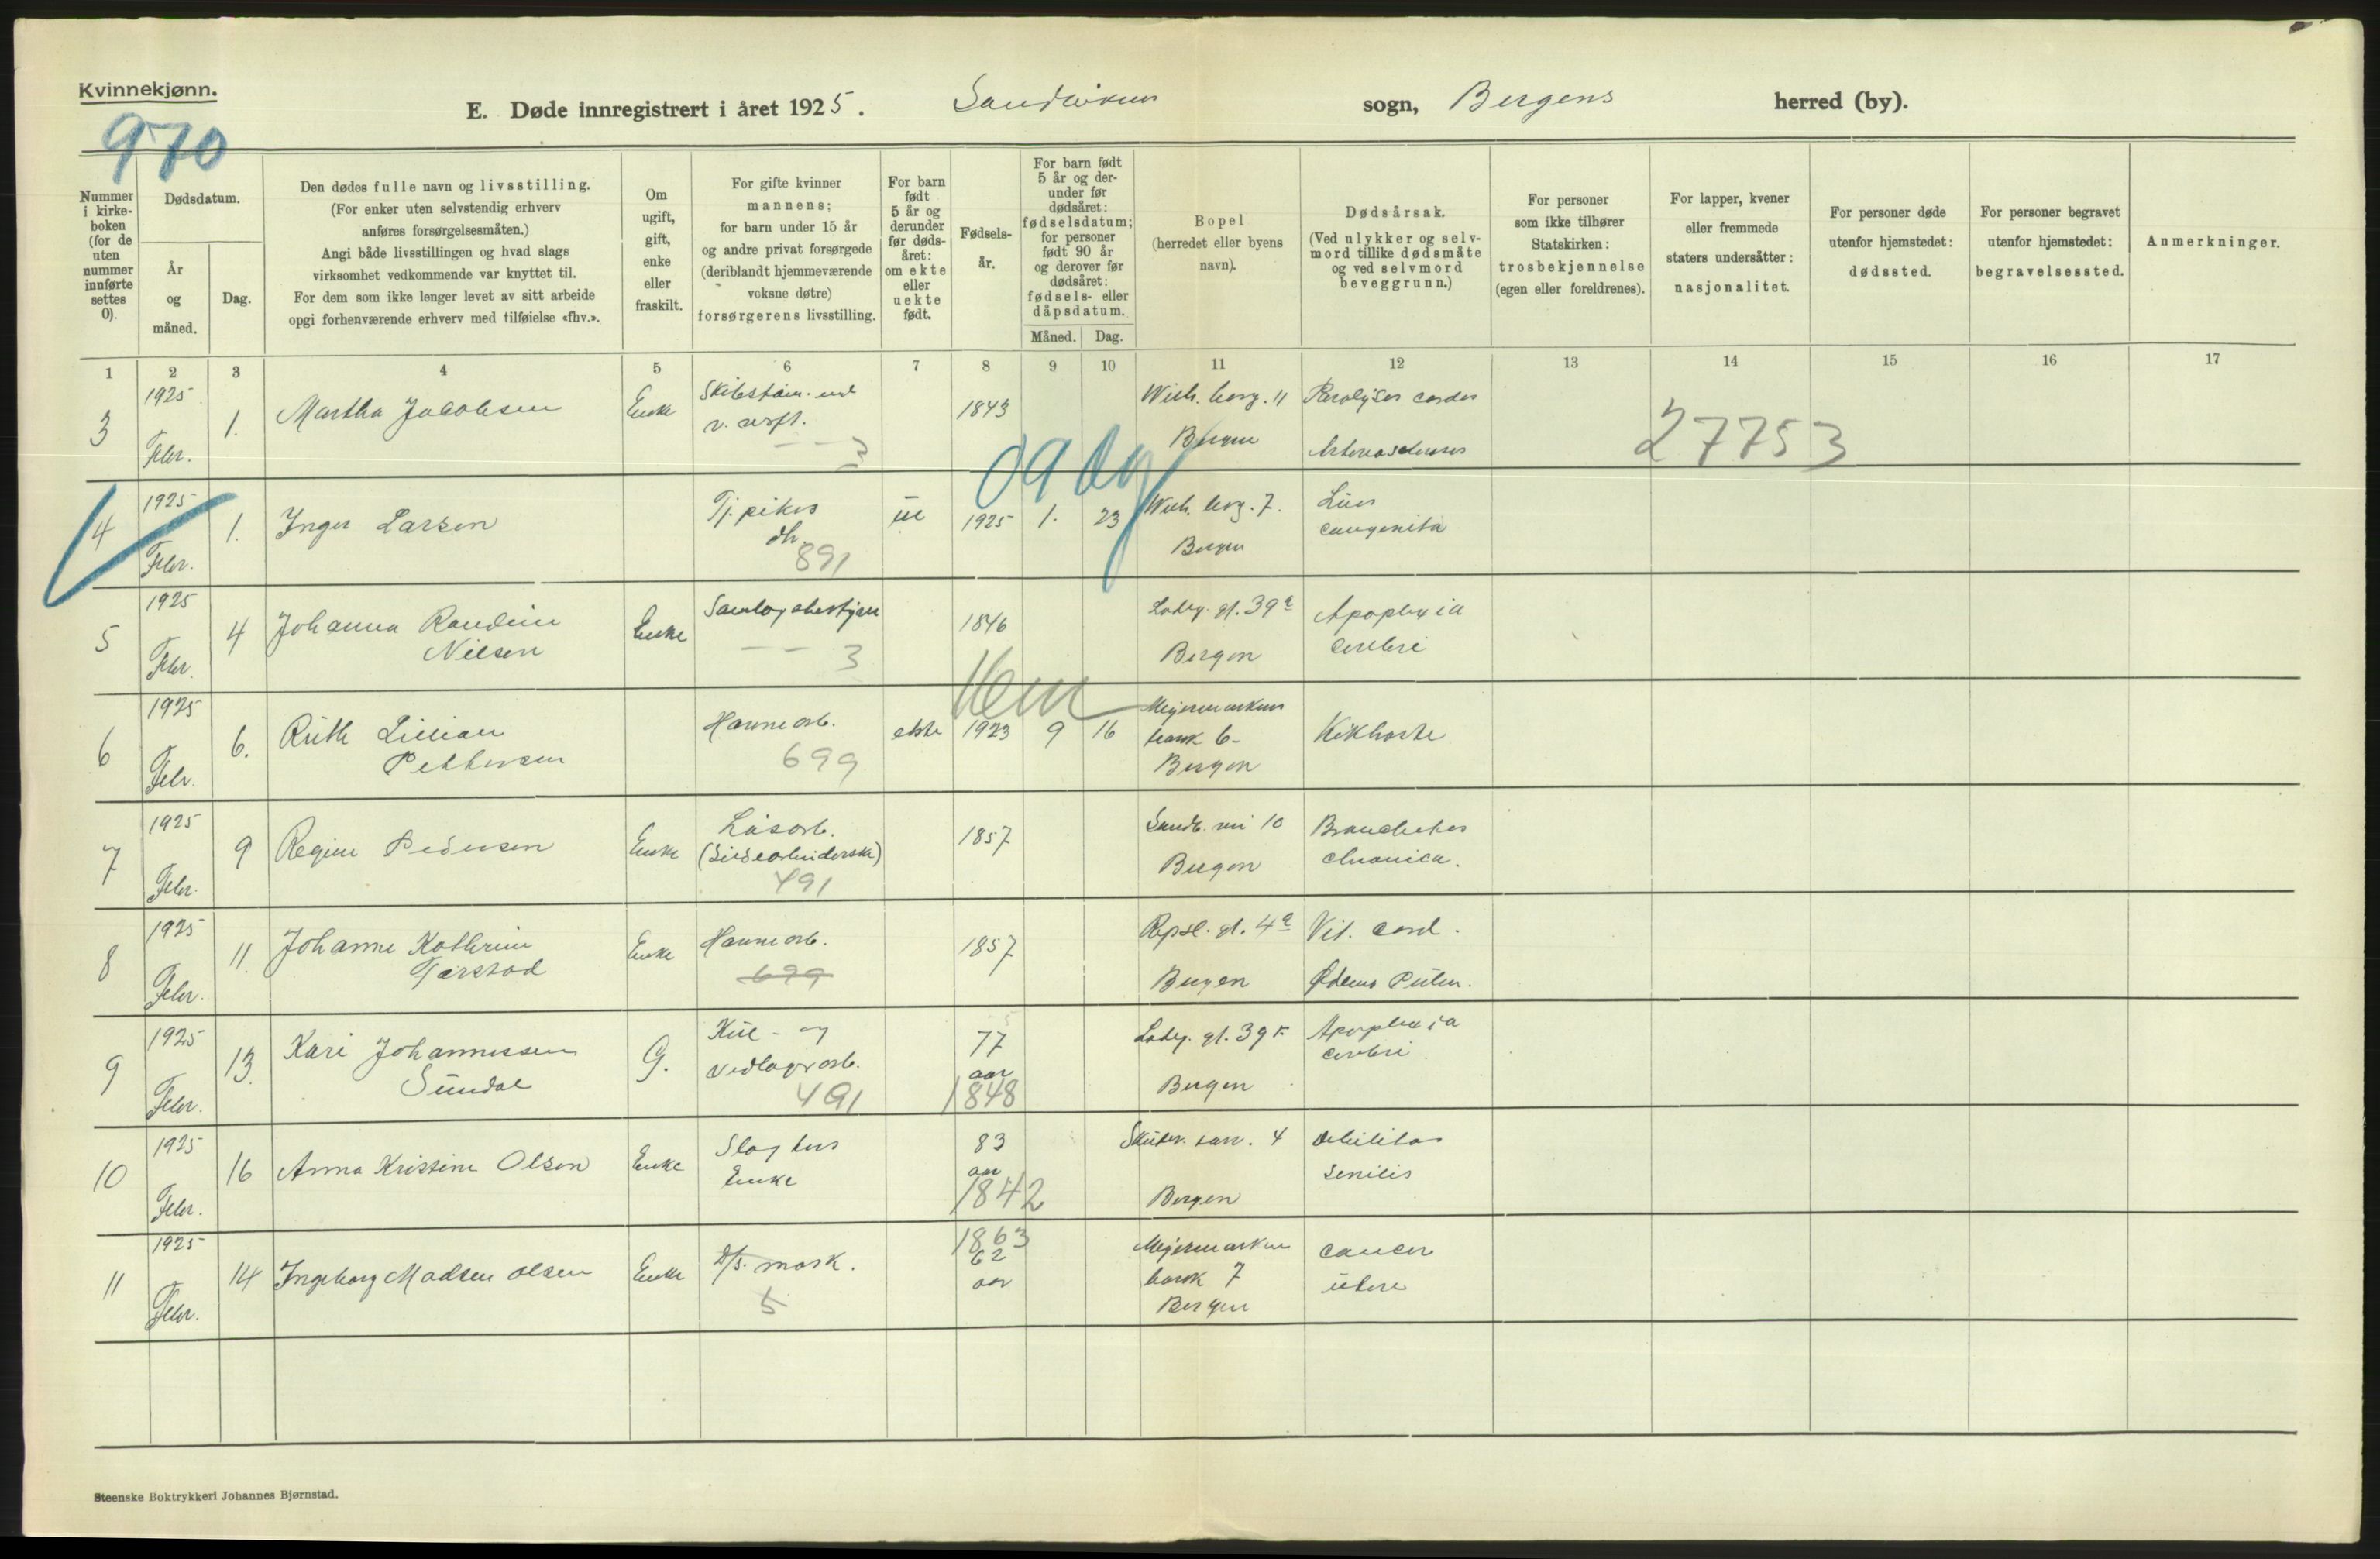 Kvinnekjønn.
E. Døde innregistrert i året 1925. Sandvikens sogn, Bergens herred (by).
970
Nummer i kirke-boken (for de uten nummer innførte settes 0).
Dødsdatum.
År og måned.
Dag.
Den dødes fulle navn og livsstilling.
(For enker uten selvstendig erhverv
anføres forsørgelsesmåten.)
Angi både livsstillingen og hvad slags
virksomhet vedkommende var knyttet til.
For dem som ikke lenger levet av sitt arbeide
opgi forhenværende erhverv med tilføielse «fhv.».
Om ugift, gift, enke eller fraskilt.
For gifte kvinner
mannens;
for barn under 15 år
og andre privat forsørgede
(deriblandt hjemmeværende
voksne døtre)
forsørgerens livsstilling.
For barn født 5 år og derunder før døds-året: om ekte eller uekte født.
Fødsels-år.
For barn født
5 år og der-
under før
dødsåret:
fødselsdatum;
for personer
født 90 år
og derover før
dødsåret:
fødsels- eller
dåpsdatum.
Måned. Dag.
Bopel
(herredet eller byens
navn).
Dødsårsak.
(Ved ulykker og selv-
mord tillike dødsmåte
og ved selvmord
beveggrunn.)
For personer
som ikke tilhører
Statskirken:
trosbekjennelse
(egen eller foreldrenes).
For lapper, kvener
eller fremmede
staters undersåtter:
nasjonalitet.
For personer døde
utenfor hjemstedet:
dødssted.
For personer begravet
utenfor hjemstedet:
begravelsessted.
Anmerkninger.
1 2 3 4 5 6 7 8 9 10 11 12 13 14 15 16 17
3 1925 Febr. 1. Martha Jacobsen Enke 1843 Bergen
27753
4 1925 Febr. 1. Inger Larsen Tj. pikes 891 ue 1925 1. 23 7. Bergen Lues congenita
5 1925 Febr. 4 Johanna Nilsen Enke 3 1846 Ladeg. gt. 39a Bergen Apoplexia cerebri
6 1925 Febr. 6. Ruth Lillian Pettersen Havnearb. 699 ekte 1923 9 16 6 Bergen Kikhoste
7 1925 Febr. 9 Regine Pedersen Enke Løsarb. 491 1857 Sandv. vei 10 Bergen Bronchites chronica.
8 1925 Febr. 11. Johanne Kathrine Enke Havnearb. 699 1857 Repsl. gt. 4a Bergen Vit. cord.
9 1925 Febr. 13. Kari Johannessen Sundal G. Kul- og vedlagerarb. 491 77 aar 1848 Ladeg. gt. 39 Bergen Apoplexia cerebri
10 1925 Febr. 16 Anna Kristine Olsen Enke Enke 83 aar 1842 4 Bergen debilitas senilis
11 1925 Febr. 14 Ingeborg Madsen Olsen Enke D/S. mask. 5 1863 62 aar 7 Bergen cancer uteri
Steenske Boktrykkeri Johannes Bjørnstad.